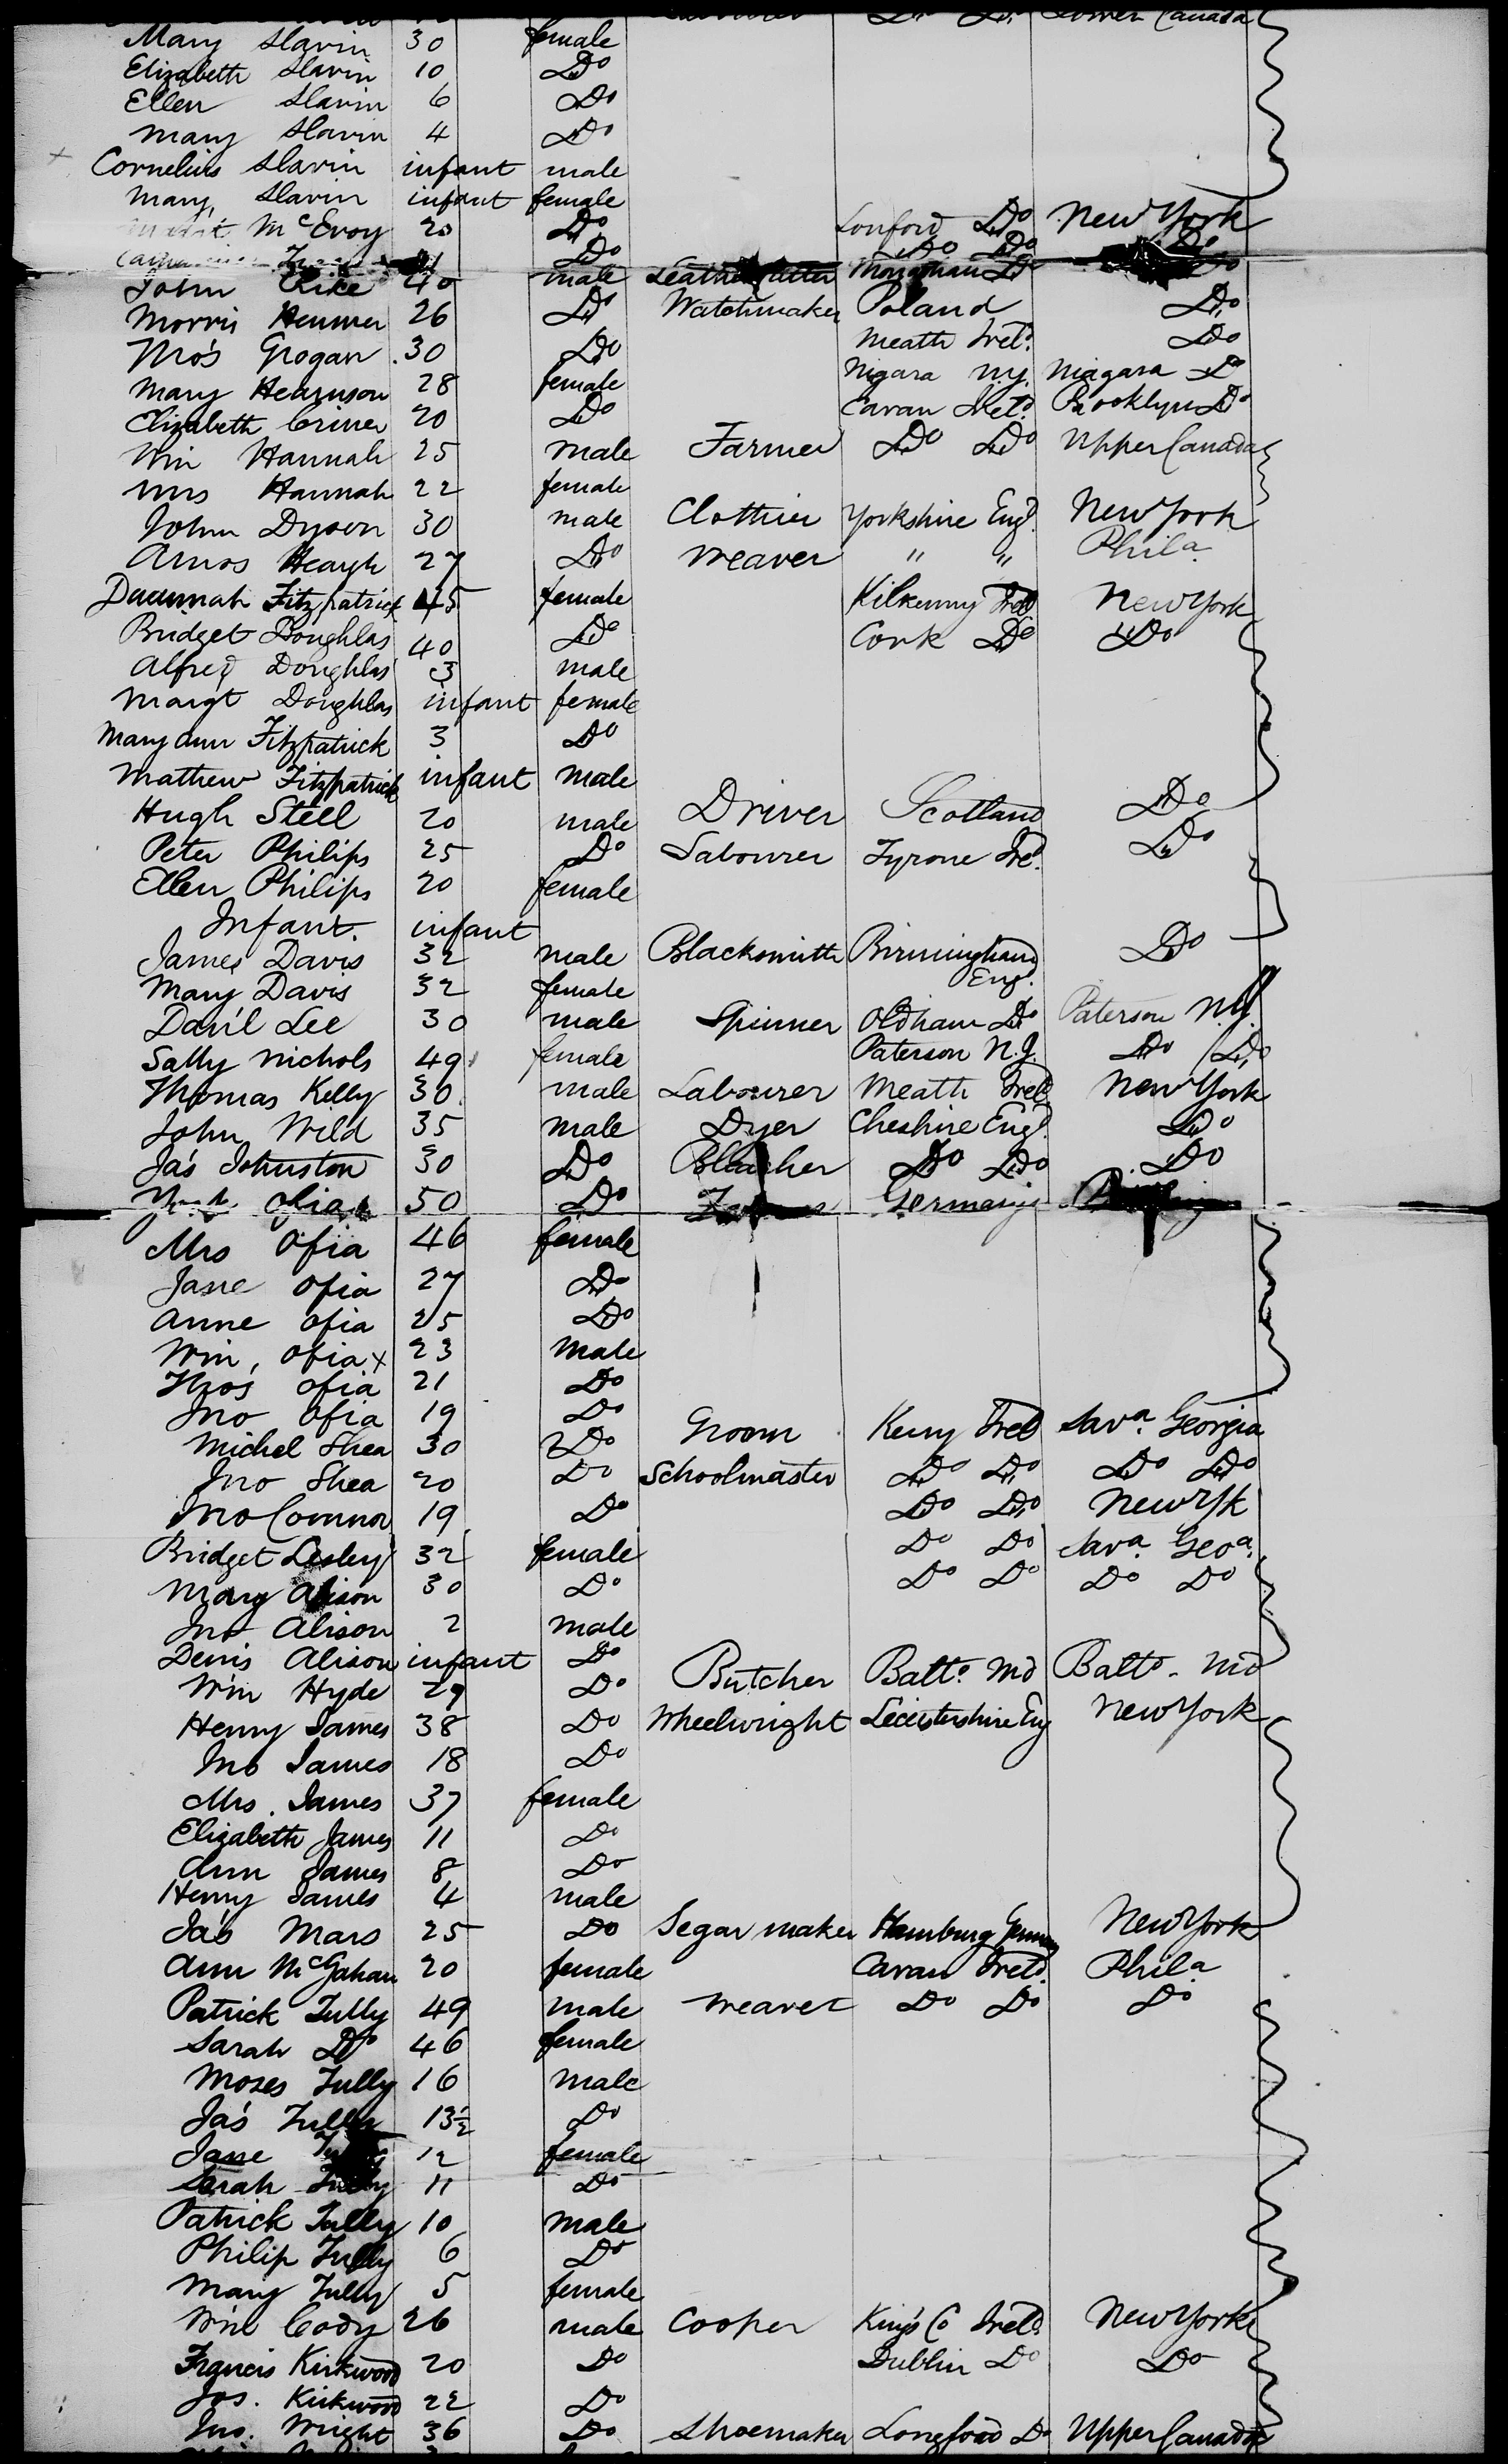 Lower Canada
Mary Slavin 30 female
Elizabeth Slavin 10 Do
Ellen Slavin 6 Do
Mary Slavin 4 Do
Cornelius Slavin infant male
Mary Slavin infant female
McEvoy 20 Do Lonford Do New York
Do Do Do Do
John Rike 40 male Monaghan Do Do
Morris Hemmer 26 Do Watchmaker Poland Do
Tho's Grogan 30 Do Meath Irel'd. Do
Mary Hearnson 28 female Nigara N.Y. Niagara Do
Elizabeth Criner 20 Do Cavan Irel'd. Brooklyn Do
Wm Hannah 25 male Farmer Do Do Upper Canada
Mrs Hannah 22 female
John Dyson 30 male Clothier Yorkshire Eng'd. New York
Amos Heaigh 27 Do Weaver " " Phila
Fitzpatrick 45 female Kilkenny Ireld New York
Bridget Doughlas 40 Do Cork Do Do
Alfred Doughlas 3 male
Margt Doughlas infant female
Mary ann Fitzpatrick 3 Do
Mathew Fitzpatrick infant male
Hugh Steel 20 male Driver Scotland Do
Peter Philips 25 Do Labourer Tyrone Ire'd. Do
Ellen Philips 20 female
Infant. infant
James Davis 32 male Blacksmith Birmingham Do
Eng'.
Mary Davis 32 female
Dan'l Lee 30 male Spinner Oldham Do Paterson N.J.
Sally Nichols 49 female Paterson N.J. Do Do
Thomas Kelly 30. male Labourer Meath Ireld New York
John Wild 35 male Dyer Cheshire Eng'd. Do
Ja's Johnston 30 Do Bleacher Do Do Do
Ofia 50 Do Germany
Mrs Ofia 46 female
Jane Ofia 27 Do
Anne Ofia 25 Do
Wm, Ofia x 23 male
Tho's Ofia 21 Do
Jno Ofia 19 Do
Michel Shea 30 Do Groom Kerry Ireld Sava. Georgia
Jno Shea 20 Do Schoolmaster Do Do Do Do
Jno Connor 19 Do Do Do New Yk
Bridget Lesley 32 female Do Do Sava. Geoa.
Mary Alison 30 Do Do Do Do Do
Jno Alison 2 male
Denis Alison infant Do
Wm Hyde 29 Do Butcher Balto. Md Balto. Md
Henry James 38 Do Wheelwright Leicestershire Eng New York
Jno James 18 Do
Mrs. James 37 female
Elizabeth James 11 Do
Ann James 8 Do
Henry James 4 male
Ja's Mars 25 Do Segar maker Hamburg Germany New York
Ann McGahan 20 female Cavan Ireld. Phila
Patrick Tully 49 male Weaver Do Do Do
Sarah Do 46 female
Moses Tully 16 male
Ja's Tully 13½ Do
Jane 12 female
Sarah Tully 11 Do
Patrick Tully 10 male
Philip Tully 6 Do
Mary Tully 5 female
Wm Cody 26 male Cooper King's Co Ireld. New York
Francis Kirkwood 20 Do Dublin Do Do
Jos. Kirkwood 22 Do
Jno. Wright 36 Do Shoemaker Longford Do Upper Canada